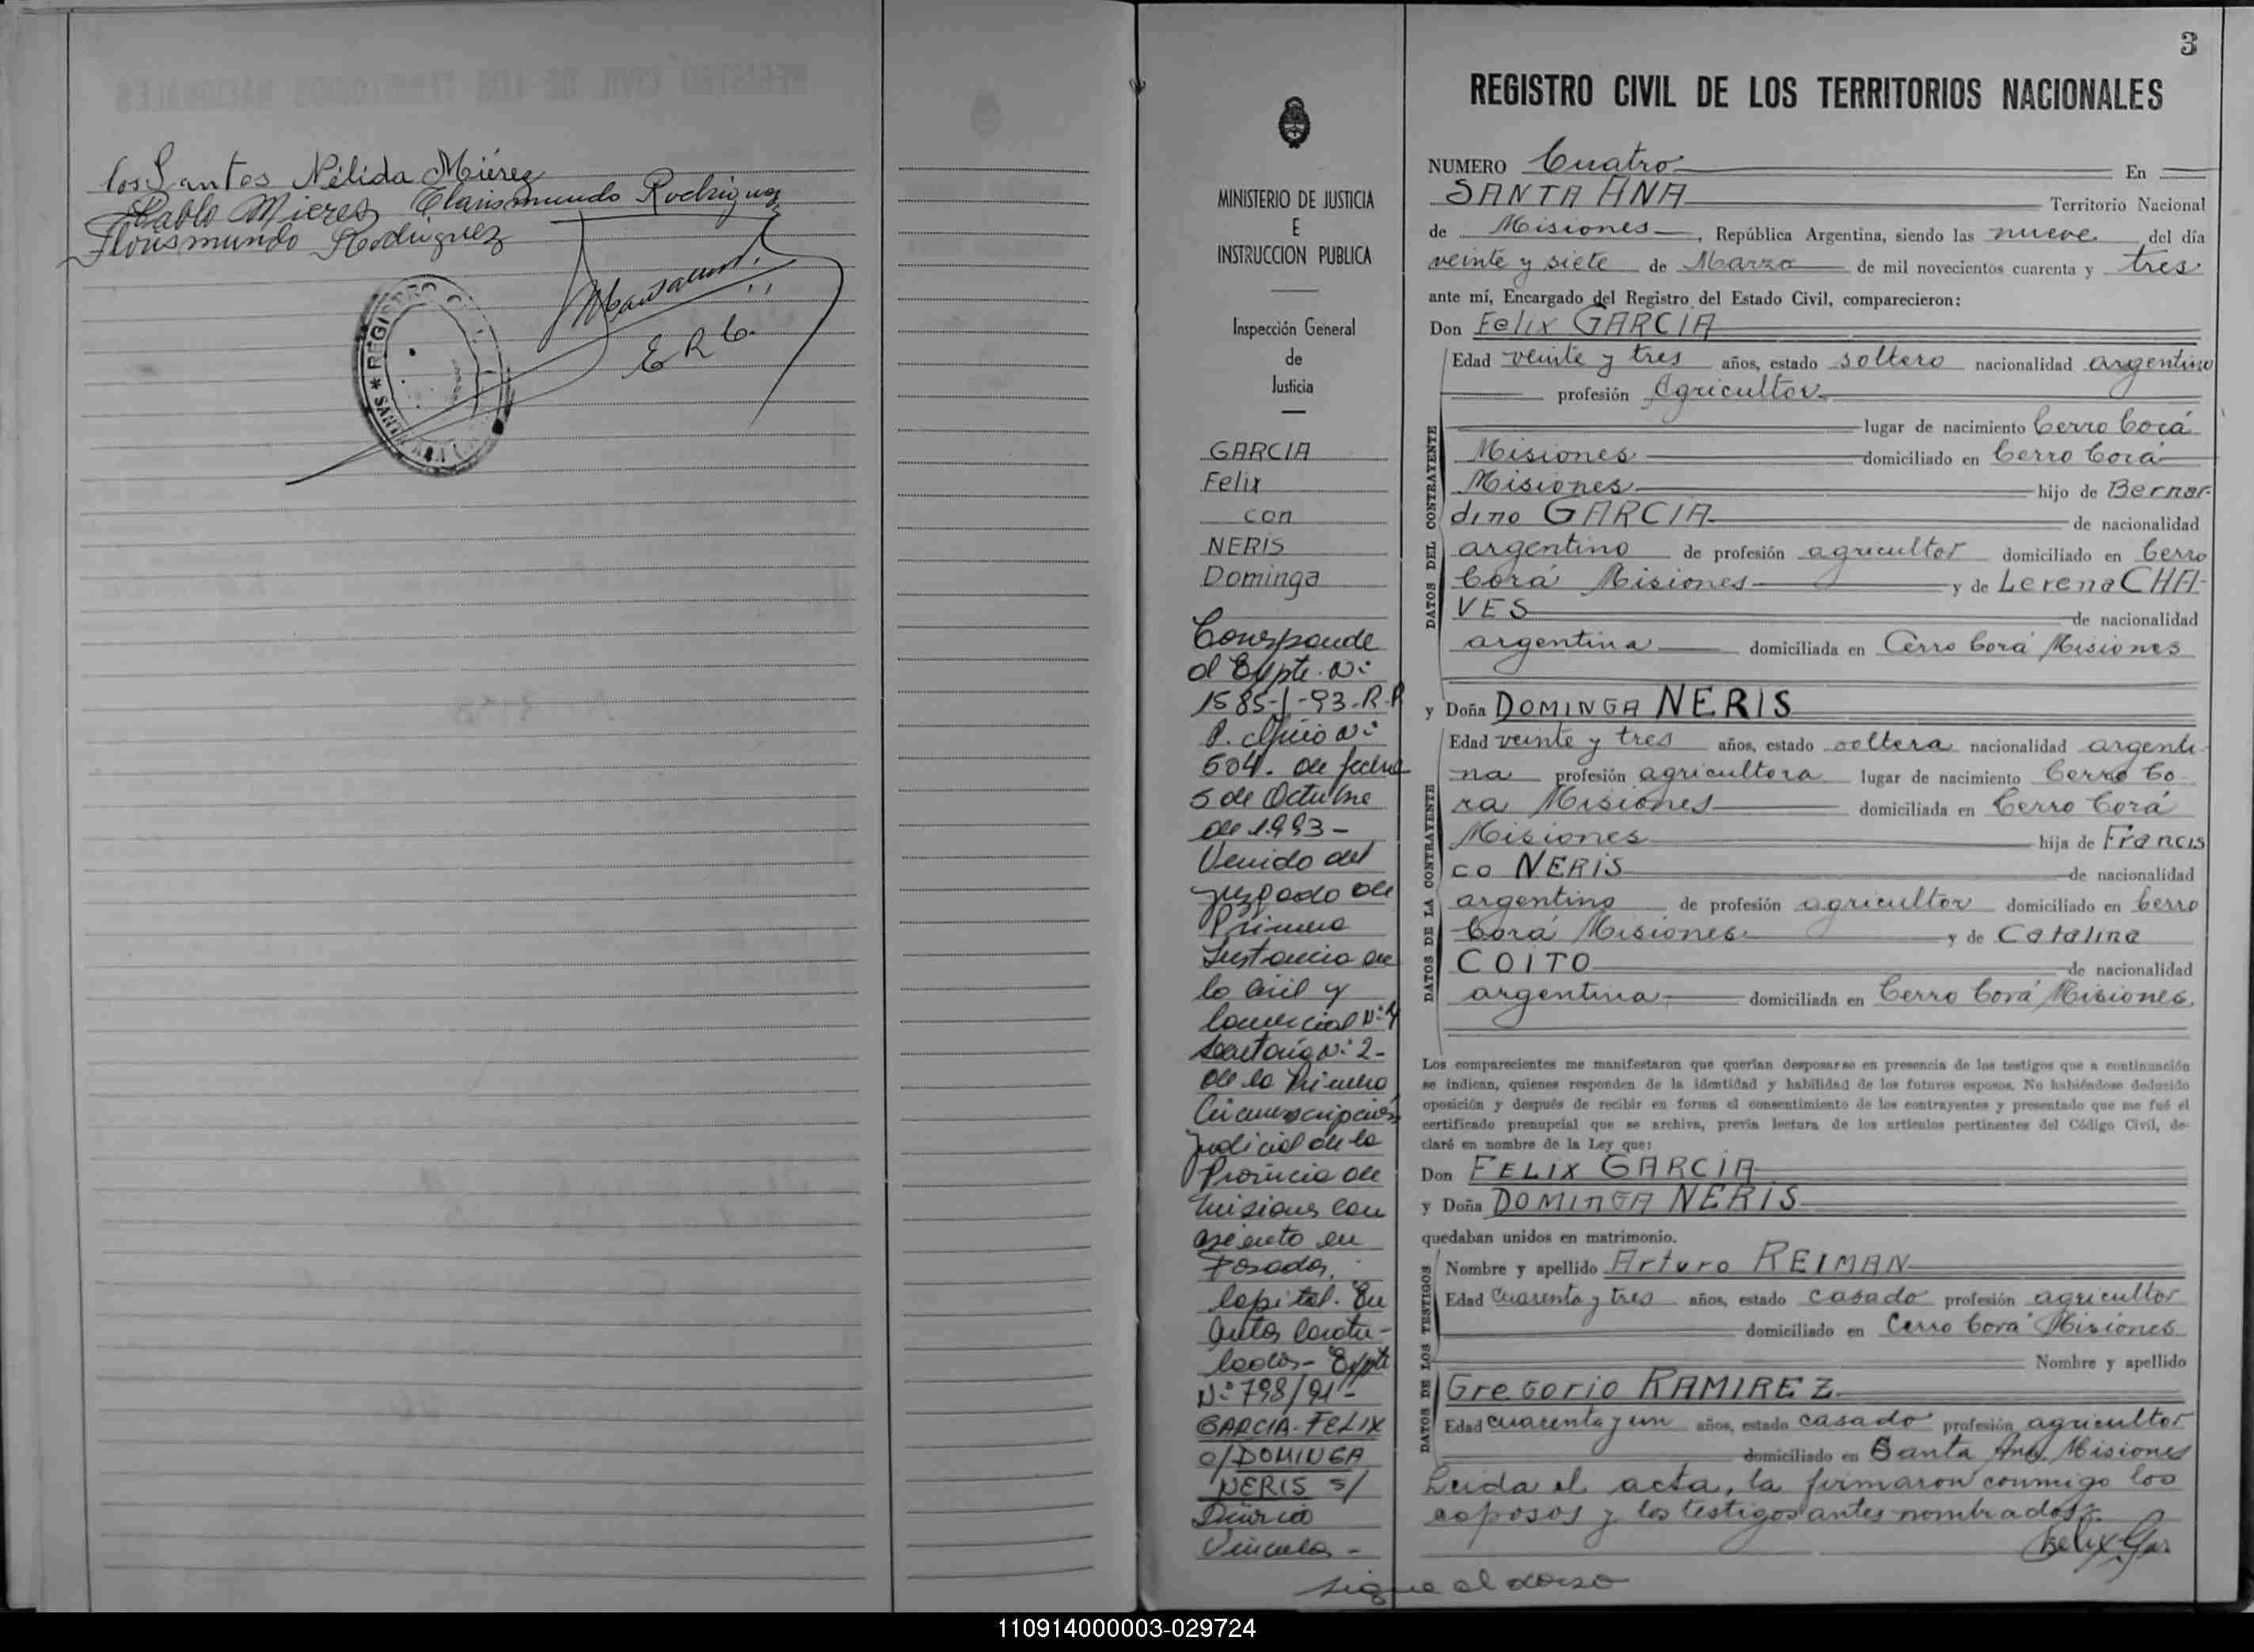 los Santos Nélida Miérez
Pablo Mieres Clarismundo Rodriguez
Florismundo Rodriguez
E R C.
* REGISTRO
SANTA ANA
3
REGISTRO CIVIL DE LOS TERRITORIOS NACIONALES
MINISTERIO DE JUSTICIA
E
INSTRUCCION PUBLICA
Inspección General
de
Justicia
GARCIA
Felix
con
NERIS
Dominga
Corresponde
al Expte. Nº
1585-J-93-R.P
P. Oficio Nº
504. de fecha
5 de Octubre
de 1993-
Venido del
Juzgado de
Primera
Instancia en
lo Civil y
Comercial Nº 4
Secretaría Nº 2-
de la Primera
Circunscripción
Judicial de la
Provincia de
Misiones con
asiento en
Posadas,
Capital. En
autos caratu-
lados- Expte
Nº 798/91-
GARCIA-FELIX
c/DOMINGA
NERIS s/
Divorcio
Vincular-
NUMERO Cuatro En
SANTA ANA Territorio Nacional
de Misiones, República Argentina, siendo las nueve del día
veinte y siete de Marzo de mil novecientos cuarenta y tres
ante mí, Encargado del Registro del Estado Civil, comparecieron:
Don Felix GARCIA
DATOS DEL CONTRAYENTE
Edad veinte y tres años, estado soltero nacionalidad argentino
profesión Agricultor
lugar de nacimiento Cerro Corá
Misiones domiciliado en Cerro Corá
Misiones hijo de Bernar-
dino GARCIA de nacionalidad
argentino de profesión agricultor domiciliado en Cerro
Corá Misiones y de Lerena CHA-
VES de nacionalidad
argentina domiciliada en Cerro Corá Misiones
y Doña DOMINGA NERIS
DATOS DE LA CONTRAYENTE
Edad veinte y tres años, estado soltera nacionalidad argenti-
na profesión agricultora lugar de nacimiento Cerro Co-
ra Misiones domiciliada en Cerro Corá
Misiones hija de Francis
co NERIS de nacionalidad
argentino de profesión agricultor domiciliado en Cerro
Corá Misiones y de Catalina
COITO de nacionalidad
argentina domiciliada en Cerro Corá Misiones.
Los comparecientes me manifestaron que querían desposarse en presencia de los testigos que a continuación
se indican, quienes responden de la identidad y habilidad de los futuros esposos. No habiéndose deducido
oposición y después de recibir en forma el consentimiento de los contrayentes y presentado que me fué el
certificado prenupcial que se archiva, previa lectura de los artículos pertinentes del Código Civil, de-
claré en nombre de la Ley que:
Don FELIX GARCIA
y Doña DOMINGA NERIS
quedaban unidos en matrimonio.
DATOS DE LOS TESTIGOS
Nombre y apellido Arturo REIMAN
Edad Cuarenta y tres años, estado casado profesión agricultor
domiciliado en Cerro Corá Misiones
Nombre y apellido
Gregorio RAMIREZ
Edad cuarenta y un años, estado casado profesión agricultor
domiciliado en Santa Ana, Misiones
Leida el acta, la firmaron conmigo los
esposos y los testigos antes nombrados.
Felix Gar
sigue al dorso
110914000003-029724